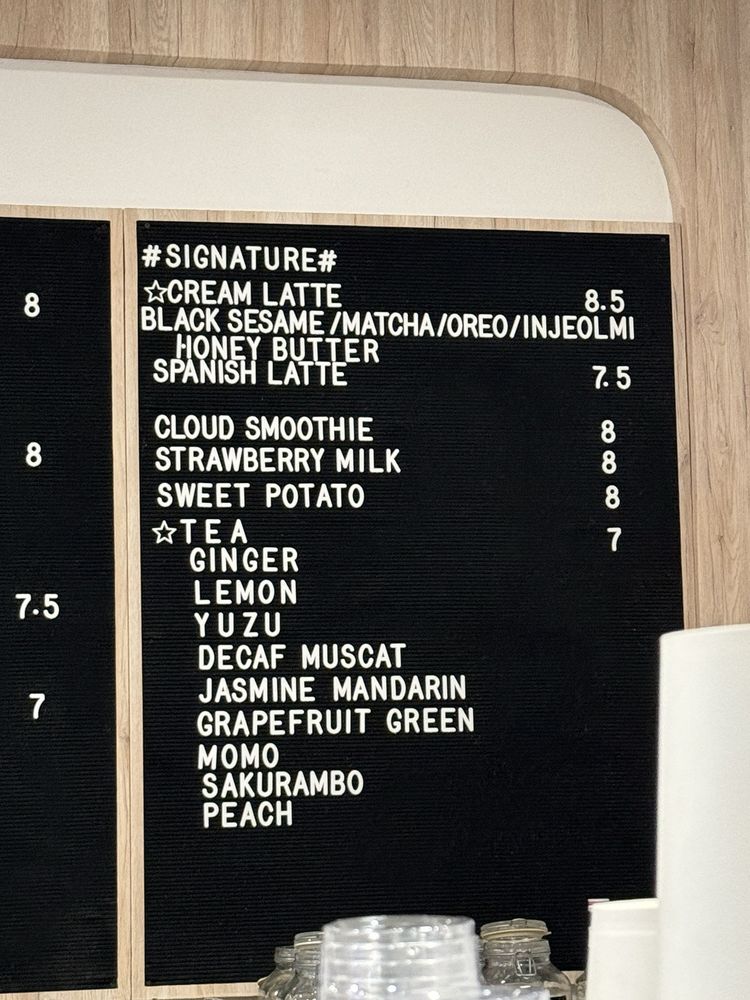 8
8
7.5
7
#SIGNATURE#
☆CREAM LATTE 8.5
BLACK SESAME/MATCHA/OREO/INJEOLMI
HONEY BUTTER
SPANISH LATTE 7.5
CLOUD SMOOTHIE 8
STRAWBERRY MILK 8
SWEET POTATO 8
☆TEA 7
GINGER
LEMON
YUZU
DECAF MUSCAT
JASMINE MANDARIN
GRAPEFRUIT GREEN
MOMO
SAKURAMBO
PEACH